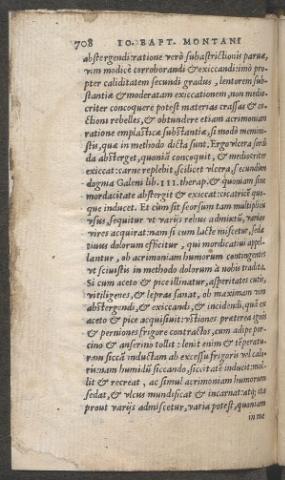 708 IO. BAPT. MONTANI
abstergendi: ratione verò subastrictionis paruæ,
vim modicè corroborandi & exiccandi: imò pro-
pter caliditatem secundi gradus, lentorem sub-
stantiæ & moderatam exiccationem, non medio-
criter concoquere potest materias crassas & co-
ctioni rebelles, & obtundere etiam acrimoniam
ratione emplasticæ substantiæ, si modò memini-
stis, quæ in methodo dicta sunt. Ergo vlcera sordi
da absterget, quoniã concoquit, & mediocriter
exiccat: carne replebit, scilicet vlcera, secundùm
dogma Galeni lib. III. therap. & quoniam sine
mordacitate abstergit & exiccat: cicatricẽ quo-
que inducet. Et cùm sit seorsum tam multiplicis
vsus, sequitur vt varijs rebus admixtũ, varias
vires acquirat: nam si cum lacte misceatur, seda
tiuus dolorum efficitur, qui mordicatiui appel-
lantur, ob acrimoniam humorum contingentes
vt sciuistis in methodo dolorum à nobis tradita.
Si cum aceto & pice illinatur, asperitates cutis,
vitiligenes, & lepras sanat, ob maximam vim
abstergendi, & exiccandi, & incidendi, quã ex
aceto & pice acquisiuit: vstiones præterea ignis
& perniones frigore contractos, cum adipe por-
cino & anserino tollit: lenit enim & tẽperatu-
ram siccã inductam ab excessu frigoris vel calo-
ris: nam humidũ siccando, siccitatẽ inducit: mol-
lit & recreat, ac simul acrimoniam humorum
sedat, & vlcus mundificat & incarnat: atq; ita
prout varijs admiscetur, varia potest, quoniam
in me